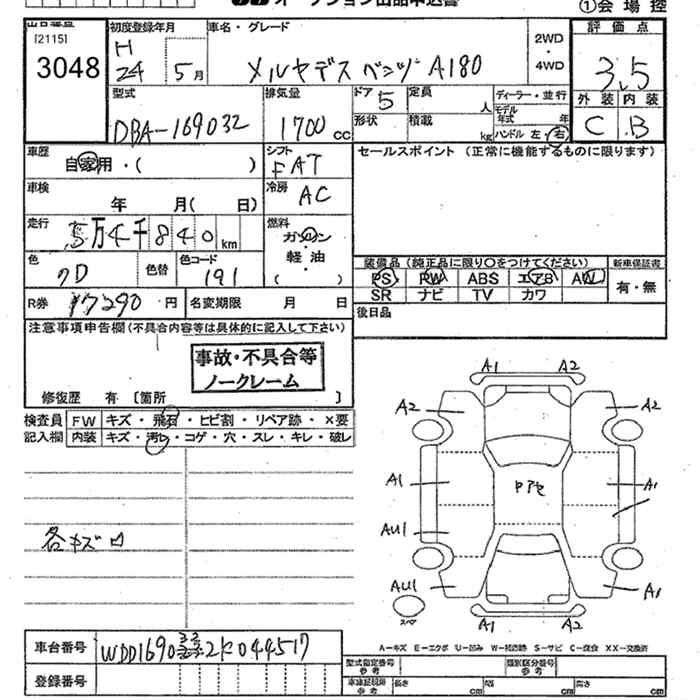 ①会場控
[2115]
3048
初度登録年月
H 24 5月
車名・グレード
メルセデスベンツ A180
2WD
・
4WD
評価点
3.5
外装 内装
C B
型式
DBA-169032
排気量
1700 cc
ドア 5
定員 人
形状
積載 kg
ディーラー・並行
モデル年式 年
ハンドル 左・右
車歴
自家用・( )
シフト
FAT
セールスポイント (正常に機能するものに限ります)
車検
年 月( 日)
冷房
AC
走行
5万4千840km
燃料
ガソリン
・
軽油
( )
色
クロ
色替
色コード
191
装備品 (純正品に限り○をつけてください)
新車保証書
PS PW ABS エアB AW
SR ナビ TV カワ
有・無
R券 17290円
名変期限 月 日
後日品
注意事項申告欄(不具合内容等は具体的に記入して下さい)
事故・不具合等
ノークレーム
修復歴 有 〔箇所 〕
検査員 FW キズ・飛石・ヒビ割・リペア跡・×要
記入欄 内装 キズ・汚レ・コゲ・穴・スレ・キレ・破レ
各キズ
A1 A2
A2 A2
A1 A1
AU1
AU1 A1
スペア
A1 A2
車台番号
登録番号
A-キズ E-エクボ U-凹み W-補修跡 S-サビ C-腐食 XX-交換済
型式指定番号
参考
類別区分番号
参考
車庫証明用
参考
長さ cm
幅 cm
高さ cm